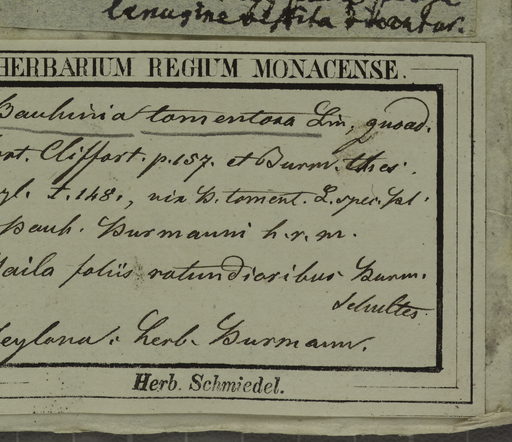 lanugine vestita
HERBARIUM REGIUM MONACENSE.
Bauhinia tomentosa Lin, quoad.
ort. Cliffort. p. 157. et Burm. thes.
yl. t. 148., vix B. toment. L. spec. pl.
Bauh. Burmanni h. r. m.
foliis rotundioribus Burm.
Schultes
Zeylona. herb. Burmann.
Herb. Schmiedel.